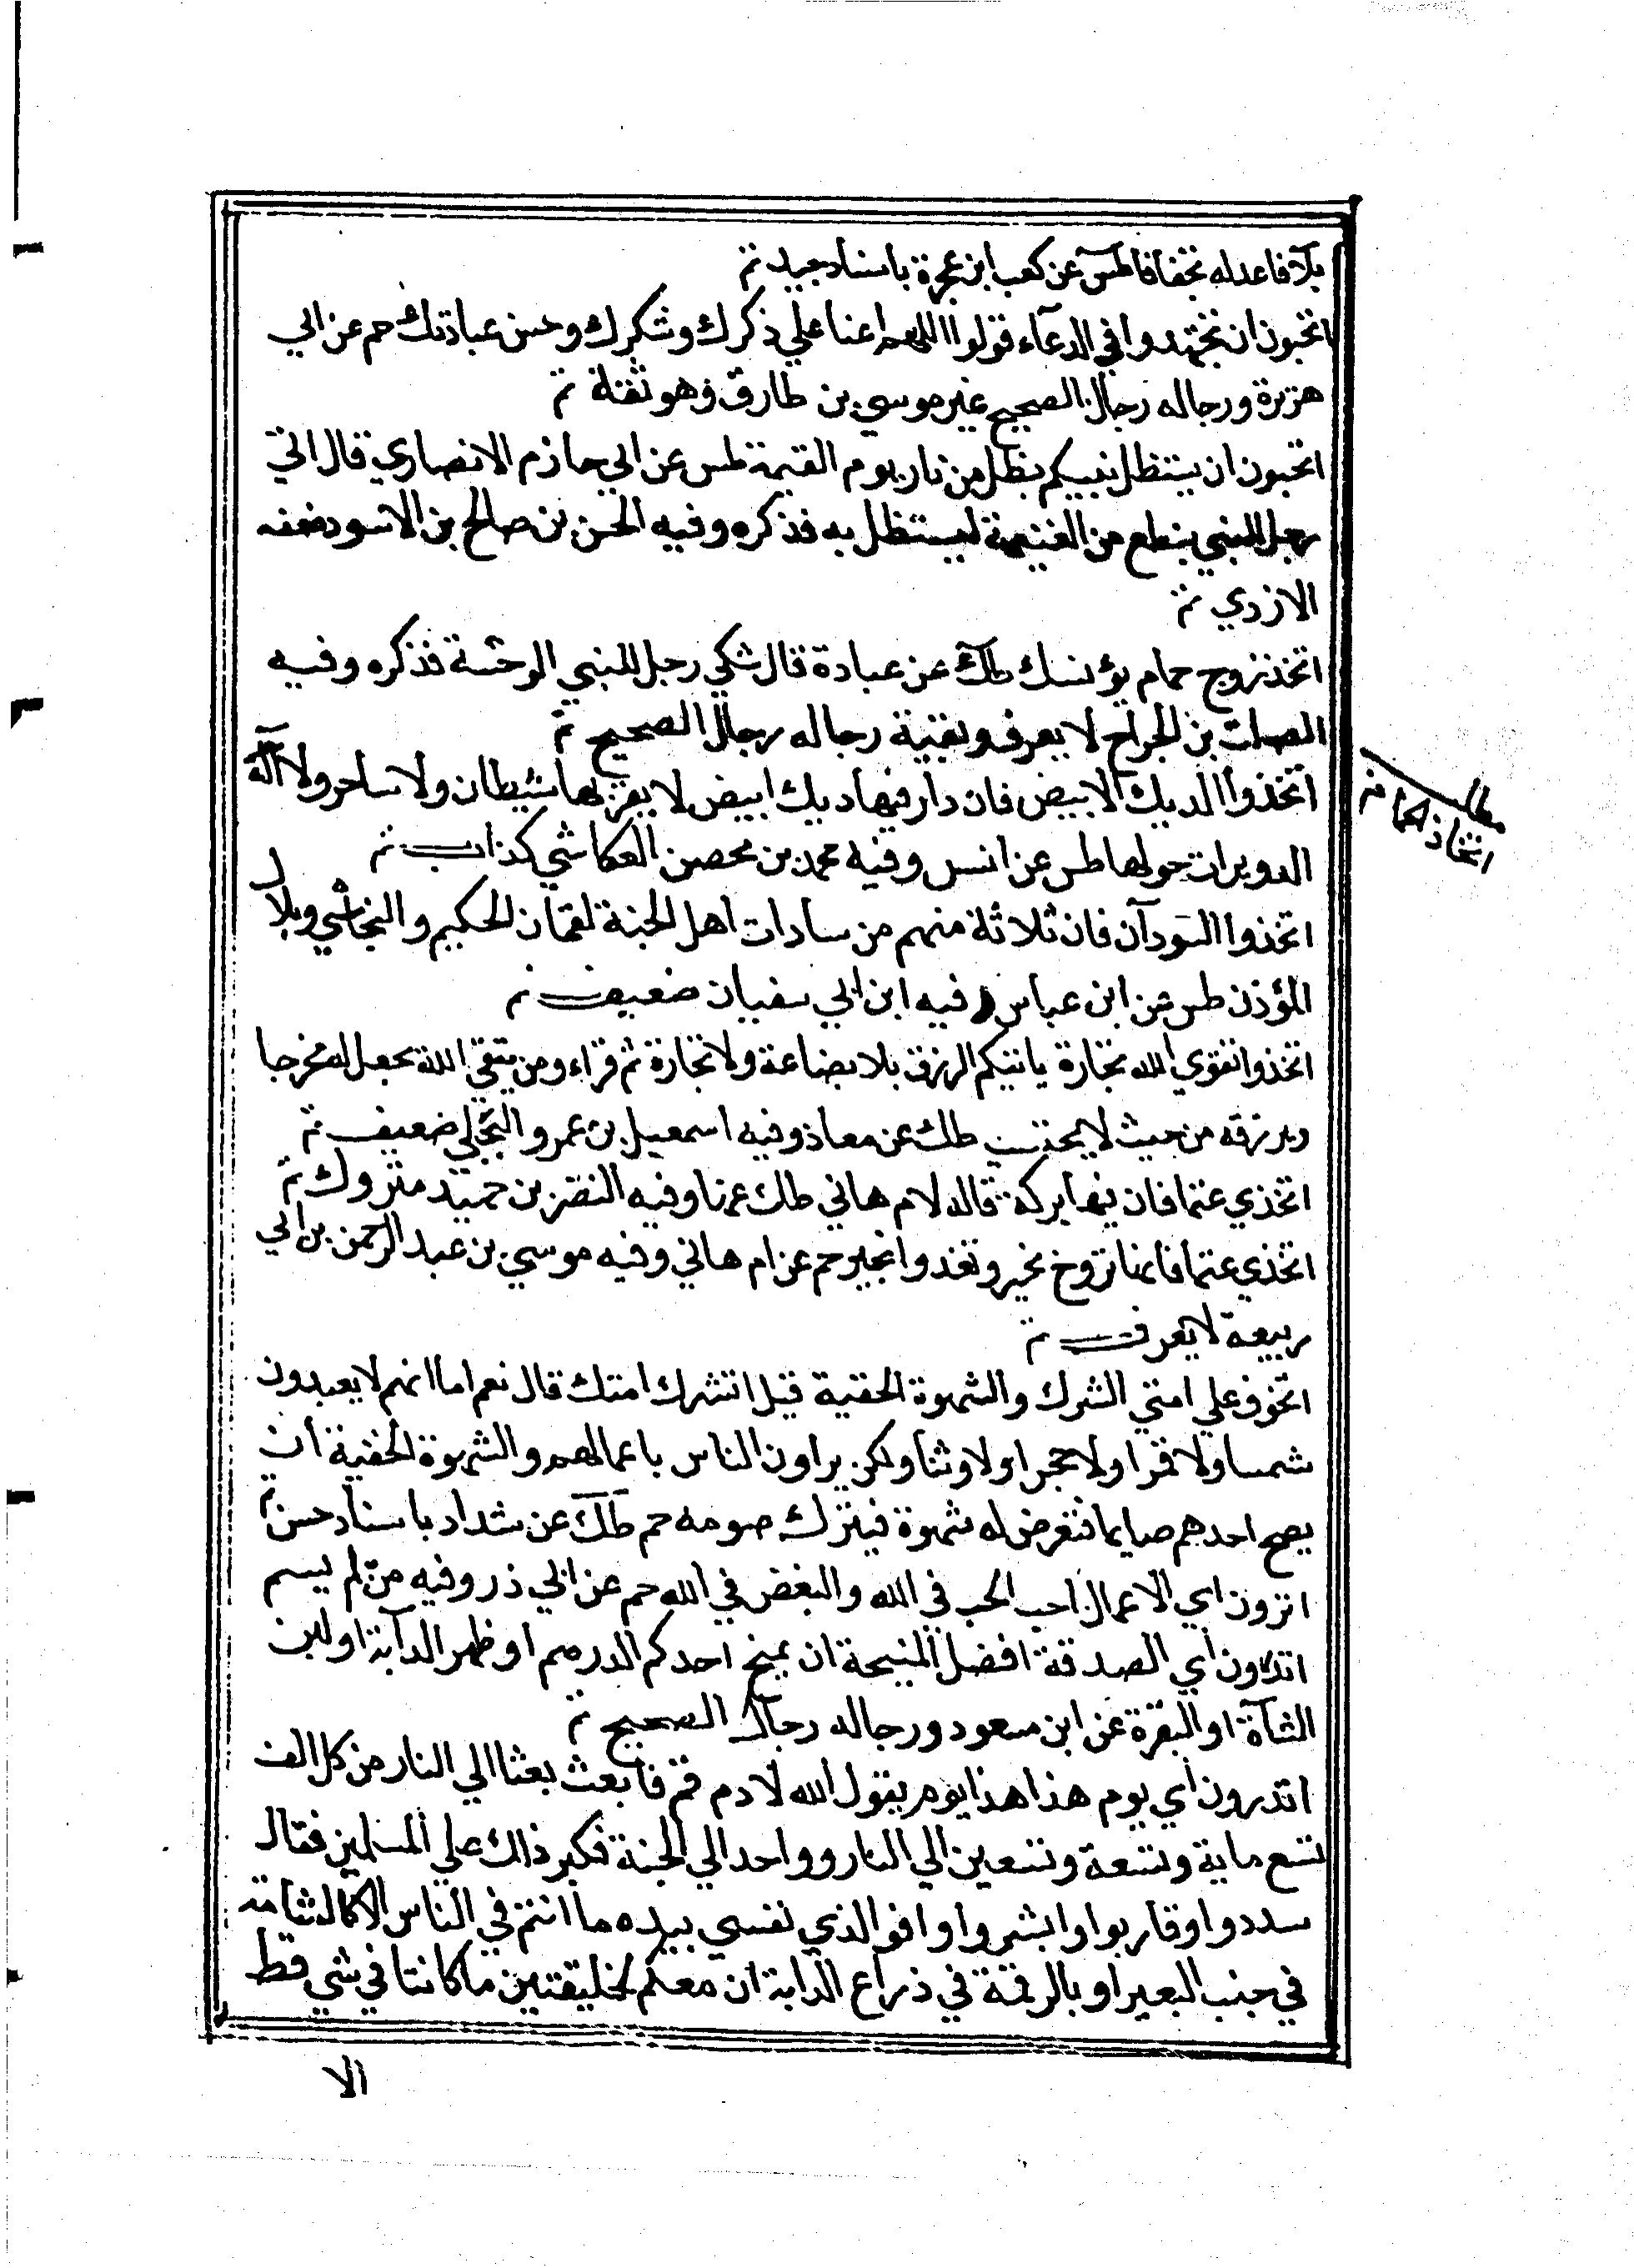 بلآ فاعد له تجفافا طس عن كعب ابن عجرة باسناد جيد تم
اتحبون ان تجتهدوا في الدعآء قولوا اللهم اعنا علي ذكرك وشكرك وحسن عبادتك حم عن ابي
هريرة ورجاله رجال الصحيح غير موسي بن طارق وهو ثقة تم
اتحبون ان يستظل نبيكم بظل من نار يوم القيمة طس عن ابي حازم الانصاري قال اتي
رجل للنبي بنطع من الغنيمة ليستظل به فذكره وفيه الحسن بن صالح بن الاسود ضعفه
الازدي تم
اتخذ زوج حمام يؤنسك طك عن عبادة قال شكي رجل للنبي الوحشة فذكره وفيه
الصلت بن الجراح لا يعرف وبقية رجاله رجال الصحيح تم
اتخذوا الديك الابيض فان دار فيها ديك ابيض لا يقربها شيطان ولا ساحر ولا آلّه
الدويرات حولها طس عن انس وفيه محمد بن محصن العكاشي كذاب تم
اتخذوا السودآن فان ثلاثة منهم من سادات اهل الجنة لقمان الحكيم والنجاشي وبلال
المؤذن طس عن ابن عباس فيه ابن ابي سفيان ضعيف تم
اتخذوا تقوي الله تجارة ياتيكم الرزق بلا بضاعة ولا تجارة ثم قراء ومن يتقي الله يجعل له مخرجا
ويرزقه من حيث لا يحتسب طك عن معاذ وفيه اسمعيل بن عمرو البجلي ضعيف تم
اتخذي عنما فان فيها بركة قاله لام هاني طك عمنا وفيه النضر بن حميد متروك تم
اتخذي عنما فانها تروح بخير وتغدوا بخير حم عن ام هاني وفيه موسي بن عبد الرحمن بن ابي
ربيعة لا يعرف تم
اتخوف علي امتي الشرك والشهوة الخفية قيل اتشرك امتك قال نعم اما انهم لا يعبدون
شمسا ولا قمرا ولا حجرا ولا وثنا ولكن يراون الناس باعمالهم والشهوة الخفية ان
يصبح احدهم صايما فتعرض له شهوة فيترك صومه حم طك عن شداد باسناد حسن تم
اترون اي الاعمال احب الحب في الله والبغض في الله حم عن ابي ذر وفيه من لم يسم
اتدرون اي الصدقة افضل المنيحة ان يمنح احدكم الدرهم او ظهر الدآبة او لبن
الشآة او البقرة عن ابن مسعود ورجاله رجال الصحيح تم
اتدرون اي يوم هذا هذا يوم يقول الله لادم قم فابعث بعثا الي النار من كل الف
تسع ماية وتسعة وتسعين الي النار وواحد الي الجنة فكبر ذلك علي المسلمين فقال
سددوا وقاربوا وابشروا فوالذي نفسي بيده ما انتم في الناس الا كالشامة
في جنب البعير او بالرقمة في ذراع الدابة ان معكم لخليقتين ما كانتا في شي قط
الا
مطلب
اتخاذ الحمام